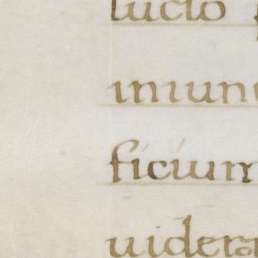 lucto
iniun
ficium
uidera